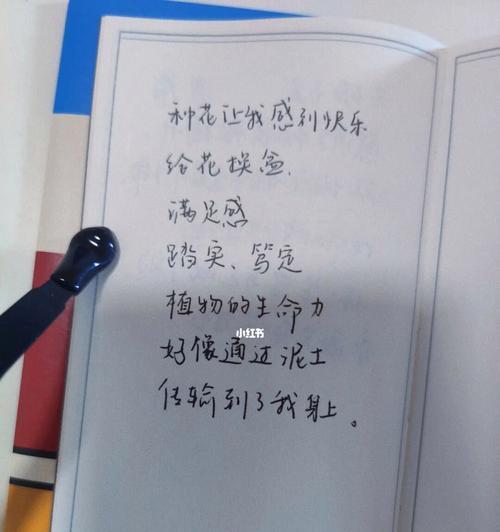 种花让我感到快乐
给花换盆、
满足感
踏实、笃定
植物的生命力
小红书
好像通过泥土
传输到了我身上。